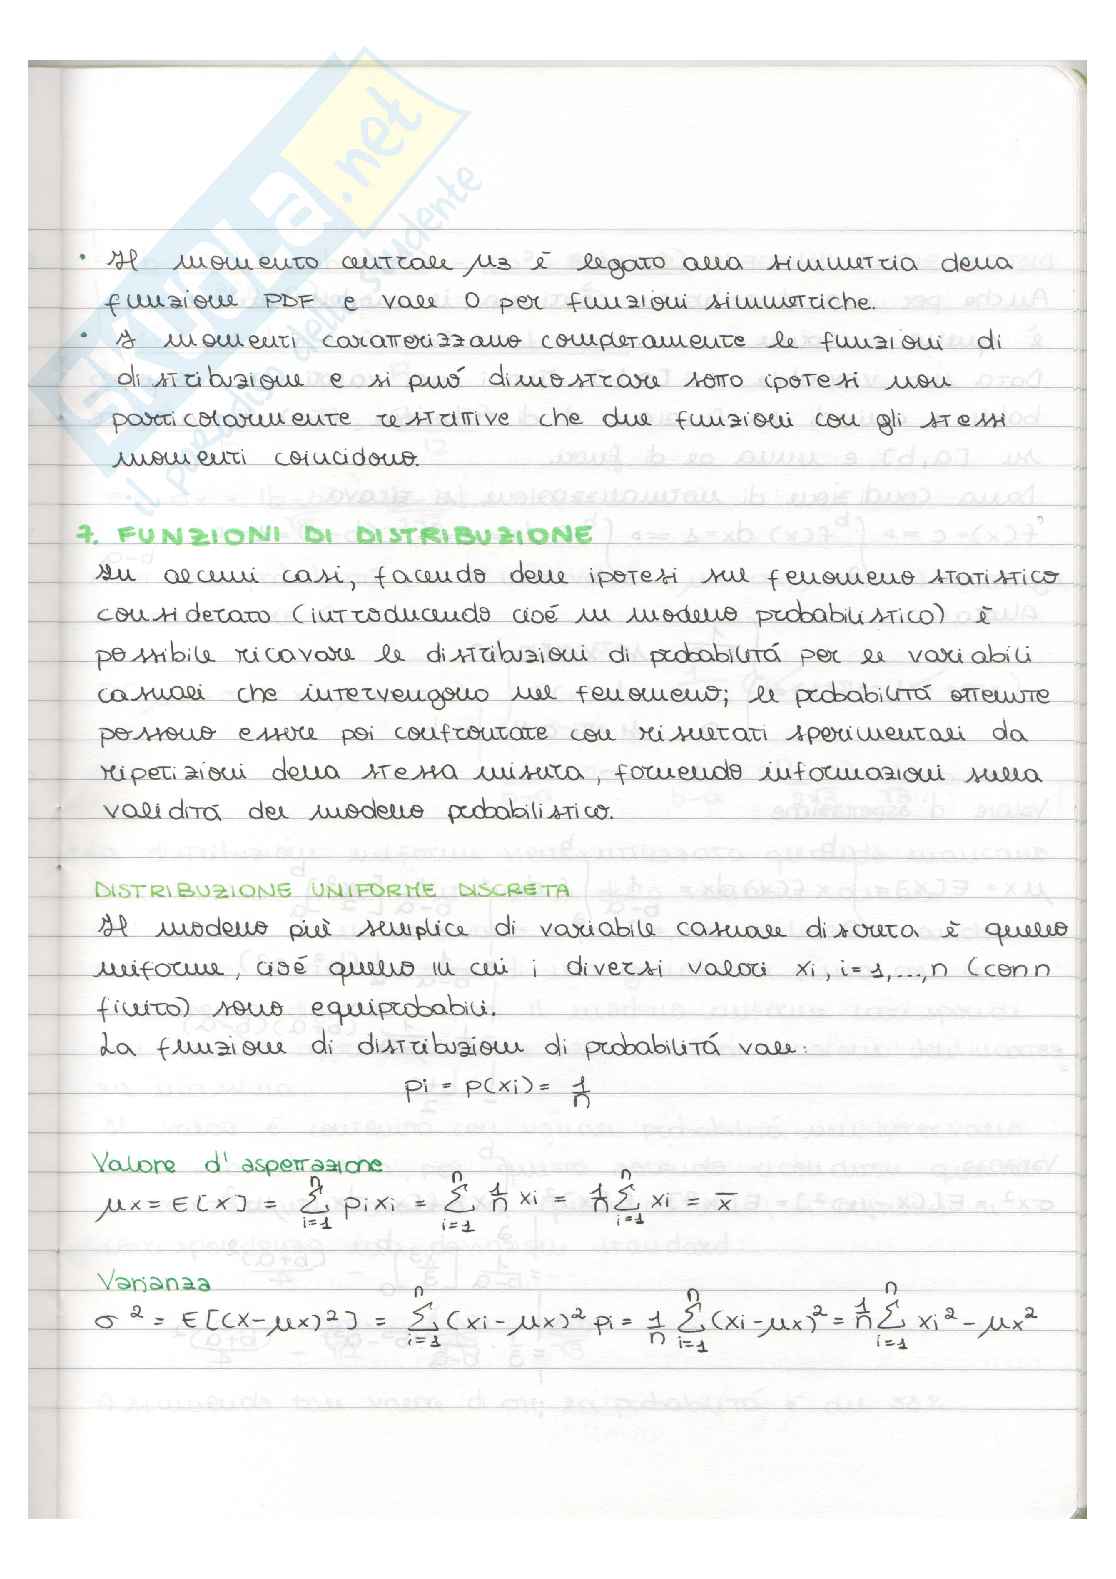 SKUOLA.net
il paradiso dello studente
• Il momento centrale μ3 è legato alla simmetria della
funzione PDF e vale 0 per funzioni simmetriche.
• I momenti caratterizzano completamente le funzioni di
distribuzione e si puó dimostrare sotto ipotesi non
particolarmente restrittive che due funzioni con gli stessi
momenti coincidono.
7. FUNZIONI DI DISTRIBUZIONE
In alcuni casi, facendo delle ipotesi sul fenomeno statistico
considerato (introducendo cioé un modello probabilistico) è
possibile ricavare le distribuzioni di probabilitá per le variabili
casuali che intervengono nel fenomeno; le probabilitá ottenute
possono essere poi confrontate con risultati sperimentali da
ripetizioni della stessa misura, fornendo informazioni sulla
validitá del modello probabilistico.
DISTRIBUZIONE UNIFORME DISCRETA
Il modello piú semplice di variabile casuale discreta è quello
uniforme, cioé quello in cui i diversi valori xi, i=1,...,n (con n
finito) sono equiprobabili.
La funzione di distribuzioni di probabilitá vale:
pi = p(xi) = 1/n
Valore d'aspettazione
μx = E[X] = Σ_{i=1}^{n} pi xi = Σ_{i=1}^{n} 1/n xi = 1/n Σ_{i=1}^{n} xi = x̄
Varianza
σ² = E[(X-μx)²] = Σ_{i=1}^{n} (xi-μx)² pi = 1/n Σ_{i=1}^{n} (xi-μx)² = 1/n Σ_{i=1}^{n} xi² - μx²